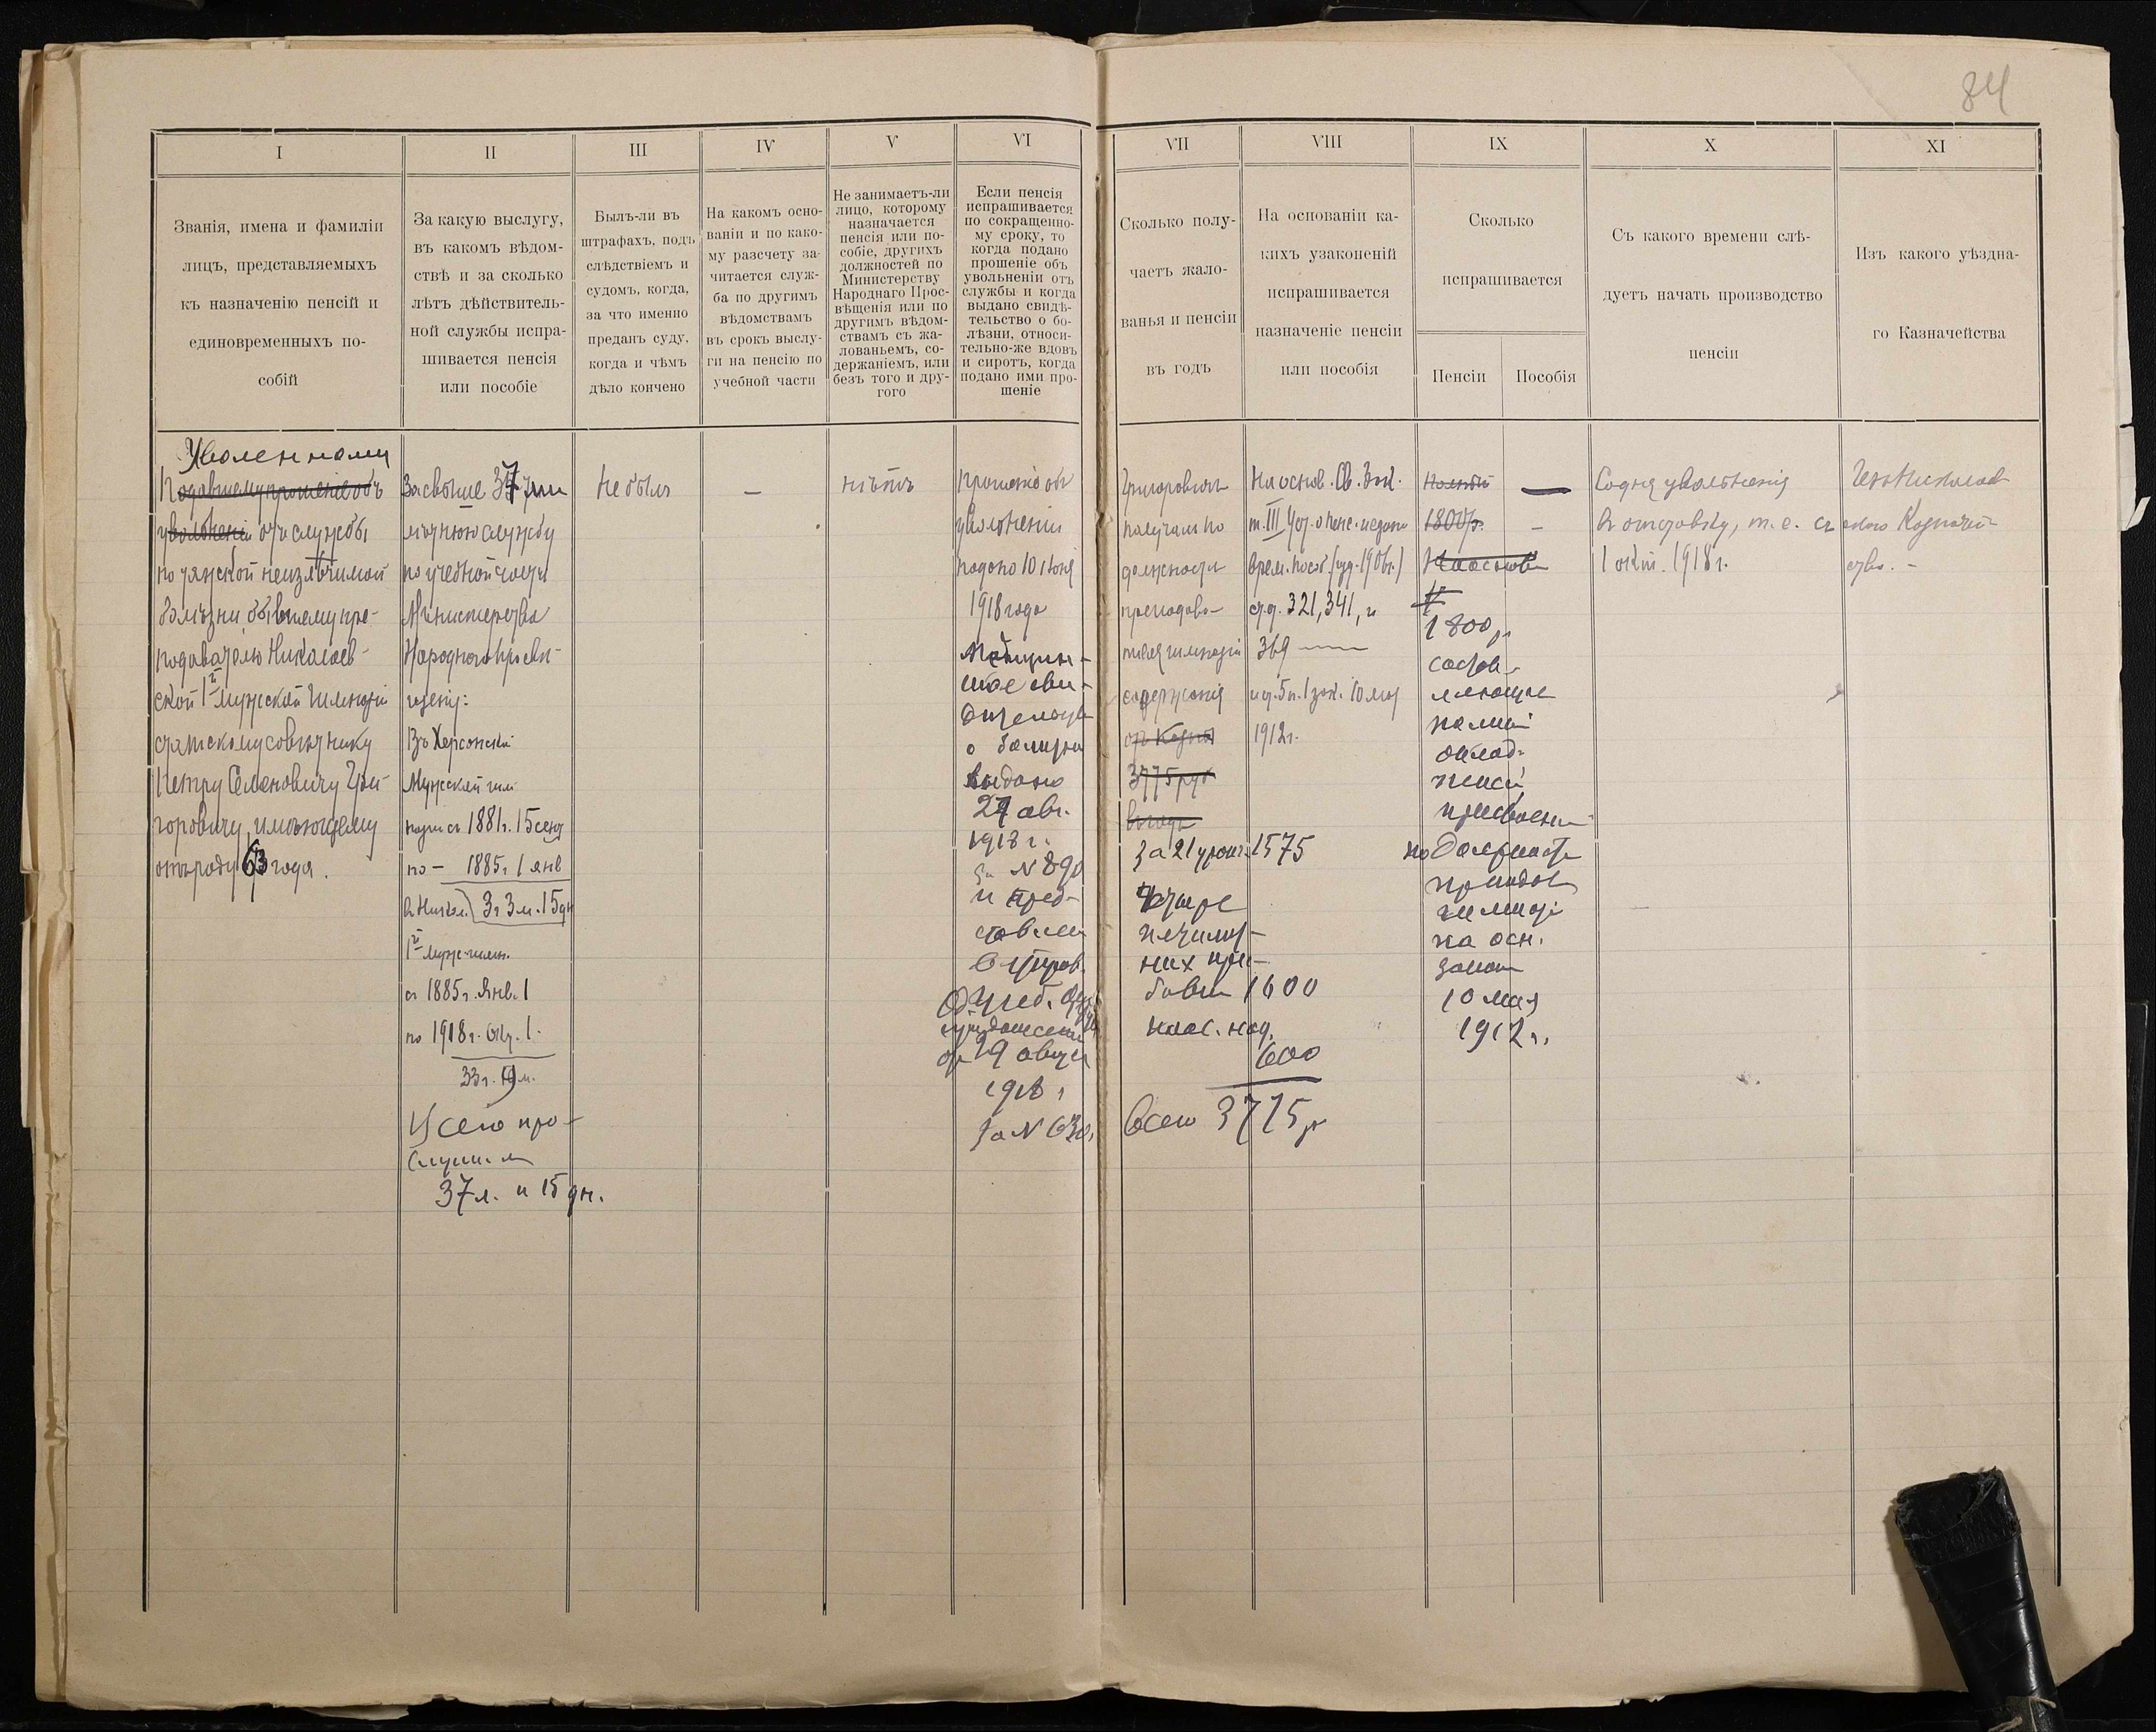 84
I
II
III
IV
V
VI
VII
VIII
IX
X
XI
Званія, имена и фамиліи
лицъ, представляемыхъ
къ назначенію пенсій и
единовременныхъ по-
собій
За какую выслугу,
въ какомъ вѣдом-
ствѣ и за сколько
лѣтъ дѣйствитель-
ной службы испра-
шивается пенсія
или пособіе
Былъ-ли въ
штрафахъ, подъ
слѣдствіемъ и
судомъ, когда,
за что именно
преданъ суду,
когда и чѣмъ
дѣло кончено
На какомъ осно-
ваніи и по како-
му разсчету за-
читается служ-
ба по другимъ
вѣдомствамъ
въ срокъ выслу-
ги на пенсію по
учебной части
Не занимаетъ-ли
лицо, которому
назначается
пенсія или по-
собіе, другихъ
должностей по
Министерству
Народнаго Прос-
вѣщенія или по
другимъ вѣдом-
ствамъ съ жа-
лованьемъ, со-
держаніемъ, или
безъ того и дру-
гого
Если пенсія
испрашивается
по сокращенно-
му сроку, то
когда подано
прошеніе объ
увольненіи отъ
службы и когда
выдано свидѣ-
тельство о бо-
лѣзни, относи-
тельно-же вдовъ
и сиротъ, когда
подано ими про-
шеніе
Сколько полу-
чаетъ жало-
ванья и пенсіи
въ годъ
На основаніи ка-
кихъ узаконеній
испрашивается
назначеніе пенсіи
или пособія
Сколько
испрашивается
Пенсіи
Пособія
Съ какого времени слѣ-
дуетъ начать производство
пенсіи
Изъ какого уѣздна-
го Казначейства
Уволенному
Подавшему прошеніе объ
увольненіи отъ службы
по тяжкой неизлѣчимой
болѣзни бывшему пре-
подавателю Николаев-
ской 1й мужской гимназіи
статскому совѣтнику
Петру Семеновичу Гри-
горовичу, имѣющему
отъ роду 63 года.
За свыше 37 лѣт
службу
по учебной части
Министерства
Народнаго Просвѣ-
щенія:
Въ Херсонской
Мужской гим-
назіи съ 1881г. 15 сент
по – 1885г. 1 янв
в Никол. 3г 3м. 15дн
1й муж. гимн.
съ 1885г. Янв. 1
по 1918г. Окт. 1.
33г. 9м.
Всего про-
служил
37 л. и 15 дн.
Не былъ
—
нѣтъ
Прошеніе объ
увольненіи
подано 10 іюня
1918 года
Медицин-
ское сви-
о болѣзни
выдано
27 авг.
1918 г.
за N 890
и пред-
ставлен
в Управ.
Учеб. Окр
от 29 август
1918 г
за N 630
Григоровичъ
получалъ по
должности
преподава-
теля гимназіи
содержанія
отъ казны
3775 руб
въ годъ
за 21 урок 1575
четыре
пятилет-
них при-
бавки 1600
клас. над.
600
Всего 3775 р
На основ. Св. Зак.
т. III Уст. о пенс. и един
врем. пособ. (изд. 1896г.)
ст. 321, 341, и
369 —
и ст. 5 п. 1 зак. 10 мая
1912г.
1800р.
—
1800 р
состав-
ляющие
полный
оклад
пенсии
присвоен
по должности
преподав
гимназий
на осн.
закона
10 мая
1912 г.
Со дня увольненія
въ отставку, т.е. съ
1 окт. 1918г.
Изъ Николаев-
скаго Казначей-
ства. –